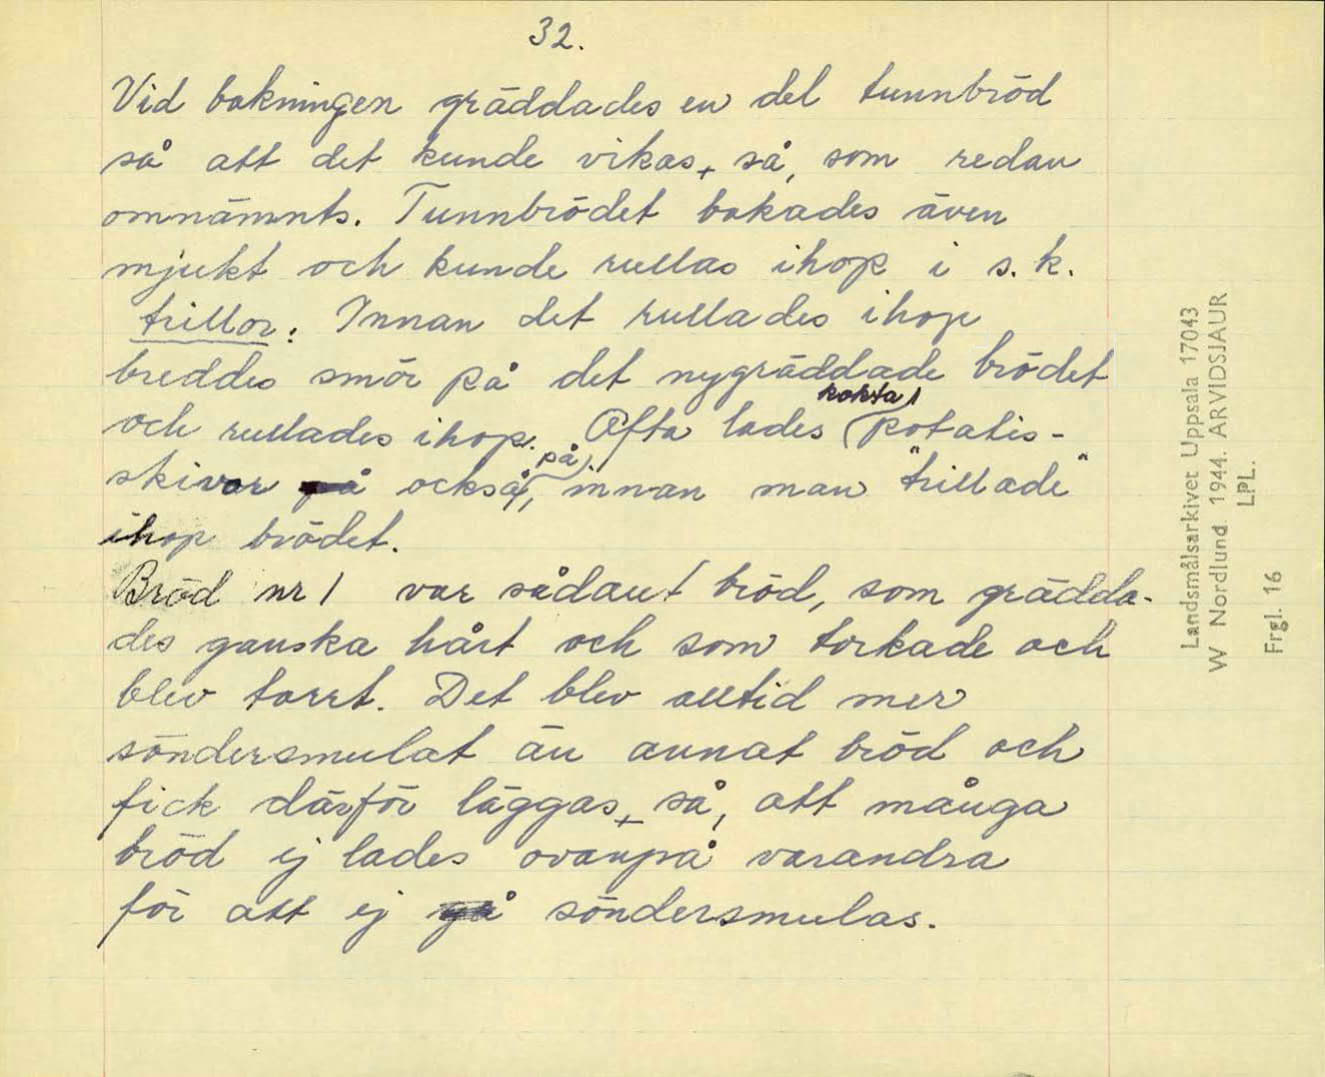 32.
Vid bakningen gräddades en del tunnbröd
så att det kunde vikas, så, som redan
omnämnts. Tunnbrödet bakades även
mjukt och kunde rullas ihop i s.k.
trillor. Innan det rullades ihop
breddes smör på det nygräddade brödet
och rullades ihop. Ofta lades kokta potatis-
skivor på också, innan man "trillade"
ihop brödet.
Bröd nr 1 var sådant bröd, som grädda-
des ganska hårt och som torkade och
blev torrt. Det blev alltid mer
söndersmulat än annat bröd och
fick därför läggas, så, att många
bröd ej lades ovanpå varandra
för att ej söndersmulas.
Landsmålsarkivet Uppsala 17043
W Nordlund 1944. ARVIDSJAUR
LPL.
Frgl. 16